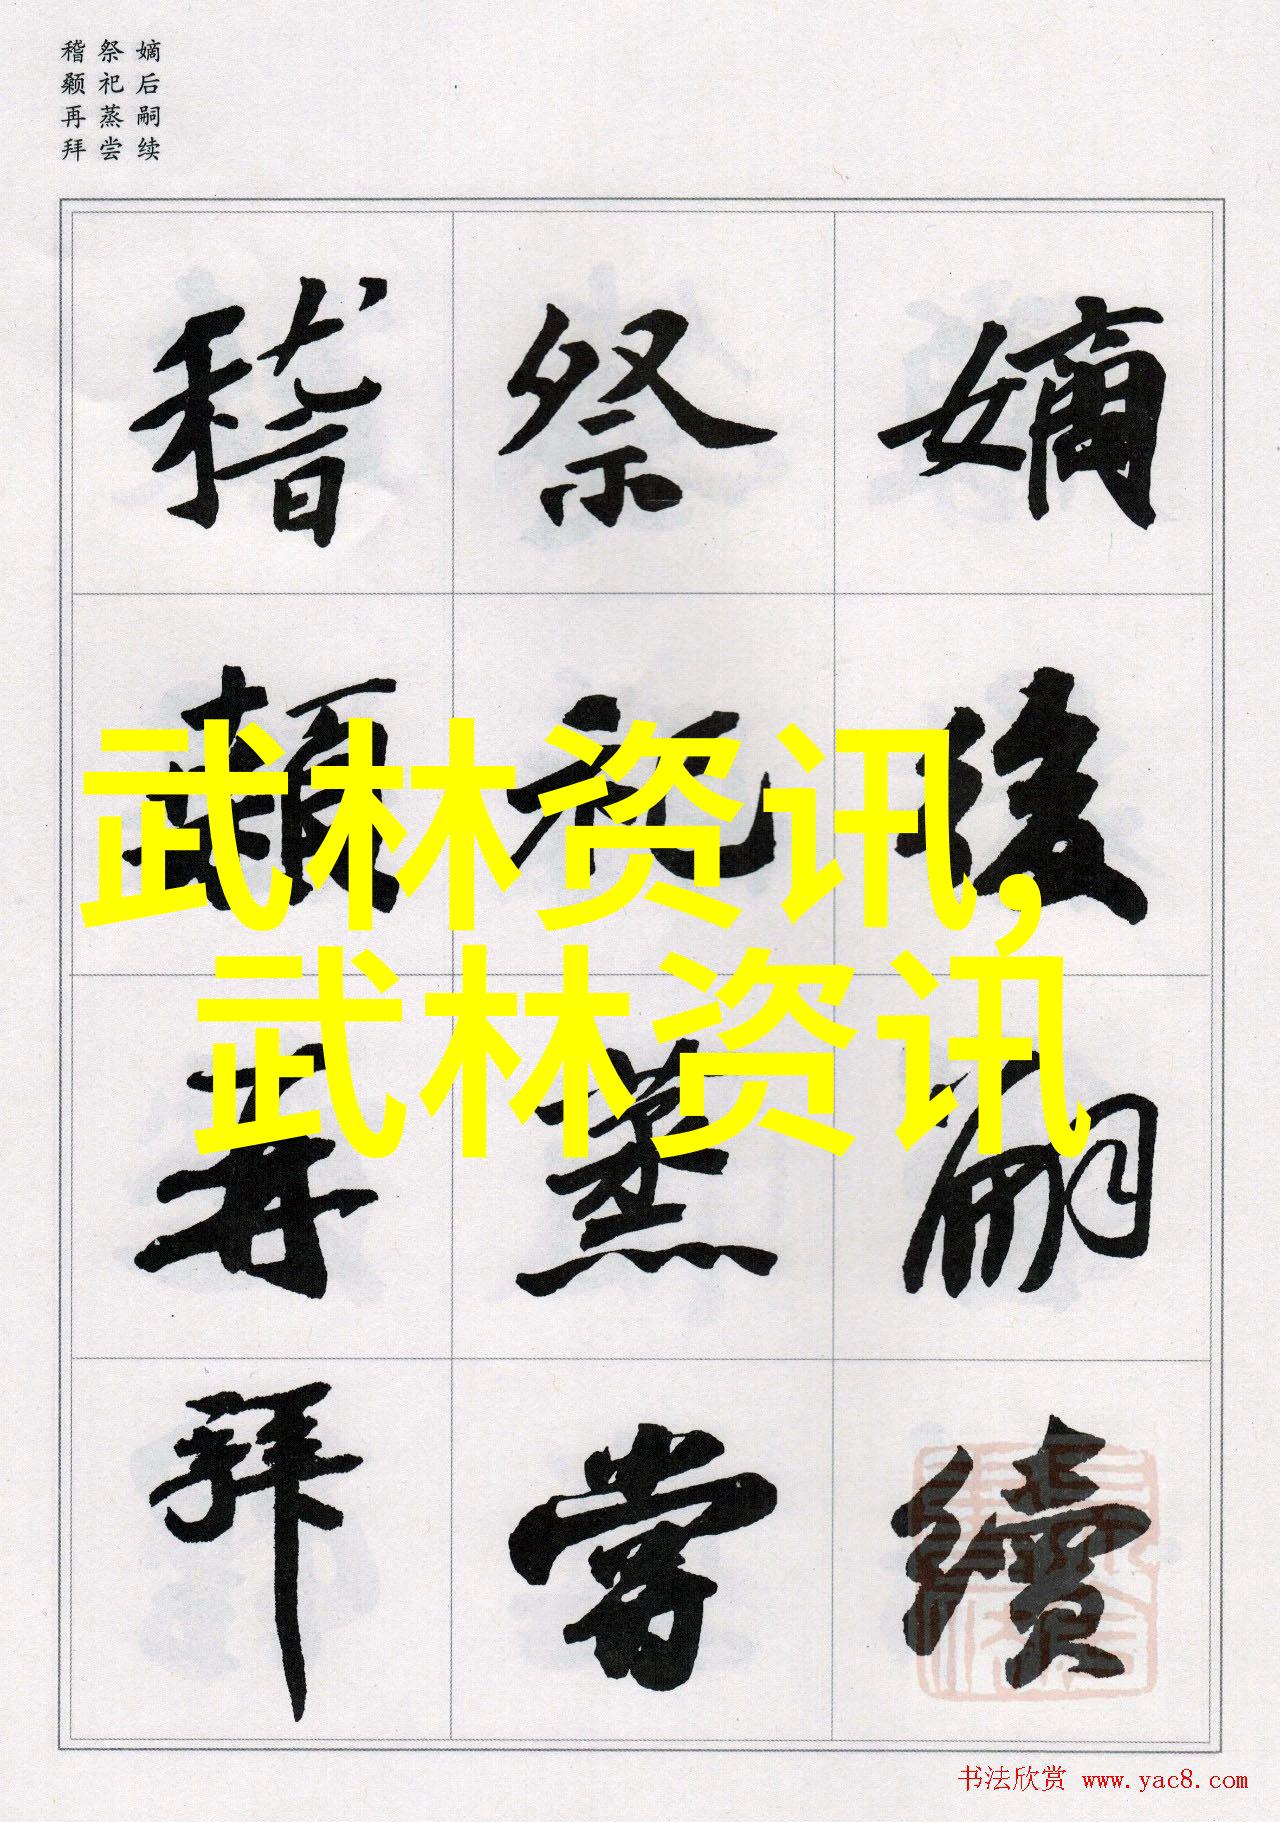 嫡后嗣续
祭祀蒸尝
稽颡再拜
嫡後嗣續
祭祀蒸嘗
稽顙再拜
武林资讯,
武林资讯
书法欣赏 www.yac8.com